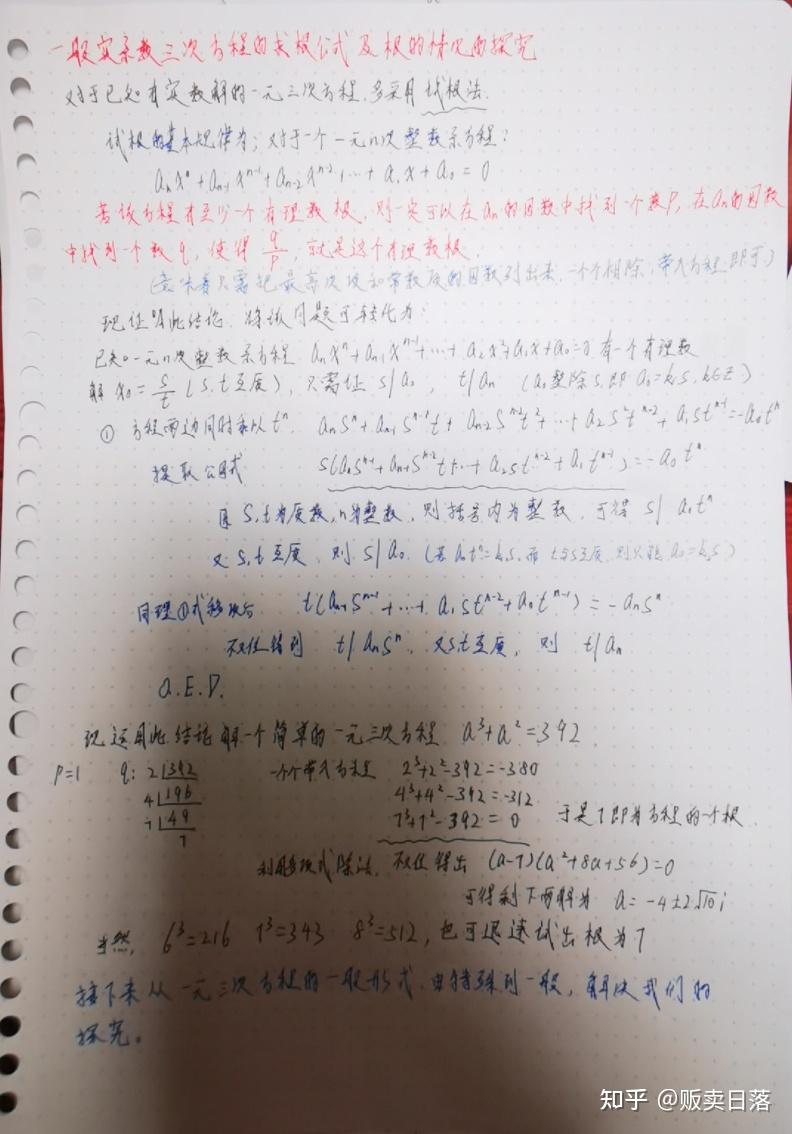 一般实系数三次方程的求根公式及根的情况的探究
对于已知有实数解的一元三次方程,多采用试根法.
试根的基本规律为;对于一个一元n次整数系方程:
aₙxⁿ+aₙ₋₁xⁿ⁻¹+aₙ₋₂xⁿ⁻²+…+a₁x+a₀=0
若该方程有至少一个有理数根,则一定可以在aₙ的因数中找到一个数p,在a₀的因数
中找到一个数q,使得 q/p,就是这个有理数根.
(意味着只需把最高次项和常数项的因数列出来,一个个相除,带入方程即可)
现证明此结论.将该问题可转化为:
已知一元n次整数系方程 aₙxⁿ+aₙ₋₁xⁿ⁻¹+…+a₂x²+a₁x+a₀=0 有一个有理数
解 x₀=s/t (s,t互质),只需证 s|a₀, t|aₙ (a₀整除s,即a₀=k₁s,k₁∈Z)
① 方程两边同时乘以tⁿ, aₙsⁿ+aₙ₋₁sⁿ⁻¹t+aₙ₋₂sⁿ⁻²t²+…+a₂s²tⁿ⁻²+a₁stⁿ⁻¹=-a₀tⁿ
提取公因式 s(aₙsⁿ⁻¹+aₙ₋₁sⁿ⁻²t+…+a₂stⁿ⁻²+a₁tⁿ⁻¹)=-a₀tⁿ
因 s,t为质数,n为整数,则括号内为整数,可得 s|a₀tⁿ
又 s,t互质,则 s|a₀. (若a₀tⁿ=k₁s,而t与s互质,则只能a₀=k₂s)
同理①式移项后 t(aₙ₋₁sⁿ⁻¹+…+a₁stⁿ⁻²+a₀tⁿ⁻¹)=-aₙsⁿ
不难得到 t|aₙsⁿ, 又s,t互质, 则 t|aₙ
Q.E.D.
现运用此结论解一个简单的一元三次方程 a³+a²=392
p=1 q: 2|392 一个个带入方程 2³+2²-392=-380
4|196 4³+4²-392=-312
7|49 7³+7²-392=0 于是7即为方程的一个根.
7
利用多项式除法,不难得出 (a-7)(a²+8a+56)=0
可得剩下两解为 a=-4±2√10i
当然, 6³=216 7³=343 8³=512,也可迅速试出根为7
接下来从一元三次方程的一般形式,由特殊到一般,解决我们的
探究.
知乎 @贩卖日落